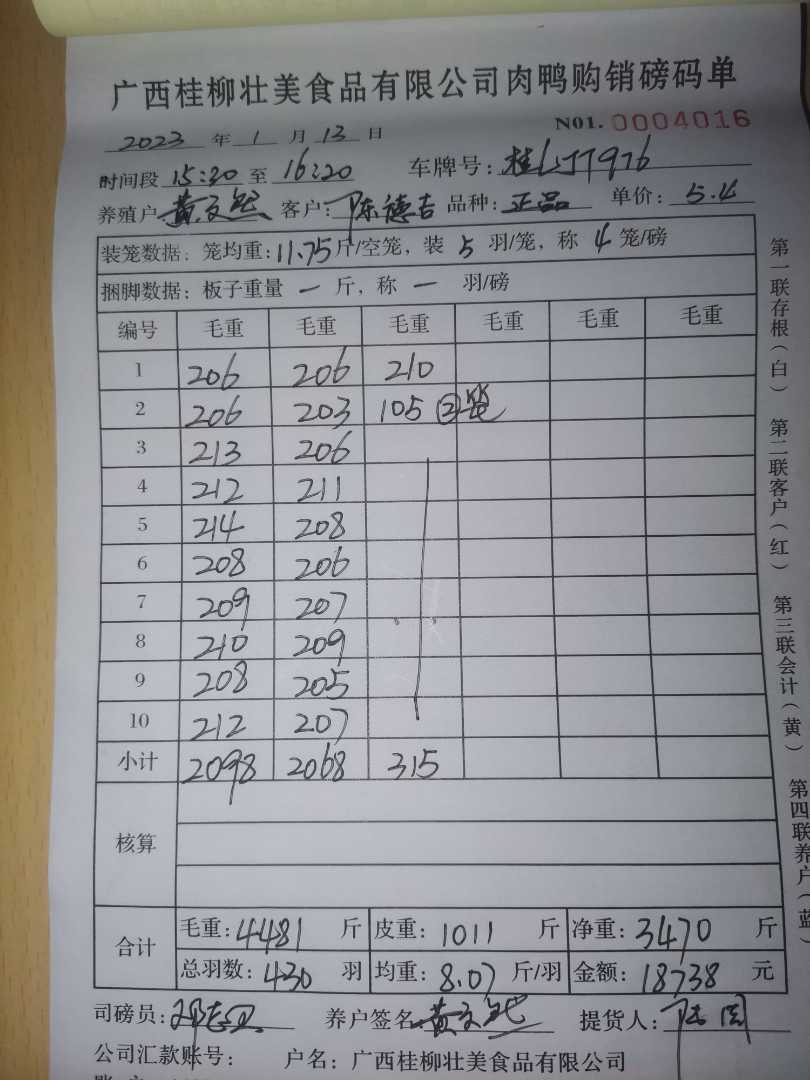 广西桂柳壮美食品有限公司肉鸭购销磅码单
2023 年 1 月 13 日 N01. 0004016
时间段 15:30 至 16:20 车牌号: 桂 J T976
养殖户 黄文 客户: 陈德吉 品种: 正品 单价: 5.4
装笼数据: 笼均重: 11.75 斤/空笼, 装 5 羽/笼, 称 4 笼/磅
捆脚数据: 板子重量 一 斤, 称 一 羽/磅
编号 毛重 毛重 毛重 毛重 毛重 毛重
1 206 206 210
2 206 203 105 ②笼
3 213 206
4 212 211
5 214 208
6 208 206
7 209 207
8 210 209
9 208 205
10 212 207
小计 2098 2068 315
核算
合计 毛重: 4481 斤 皮重: 1011 斤 净重: 3470 斤
总羽数: 430 羽 均重: 8.07 斤/羽 金额: 18738 元
司磅员: 养户签名 黄文 提货人:
公司汇款账号: 户名: 广西桂柳壮美食品有限公司
第一联存根(白) 第二联客户(红) 第三联会计(黄) 第四联养户(蓝)